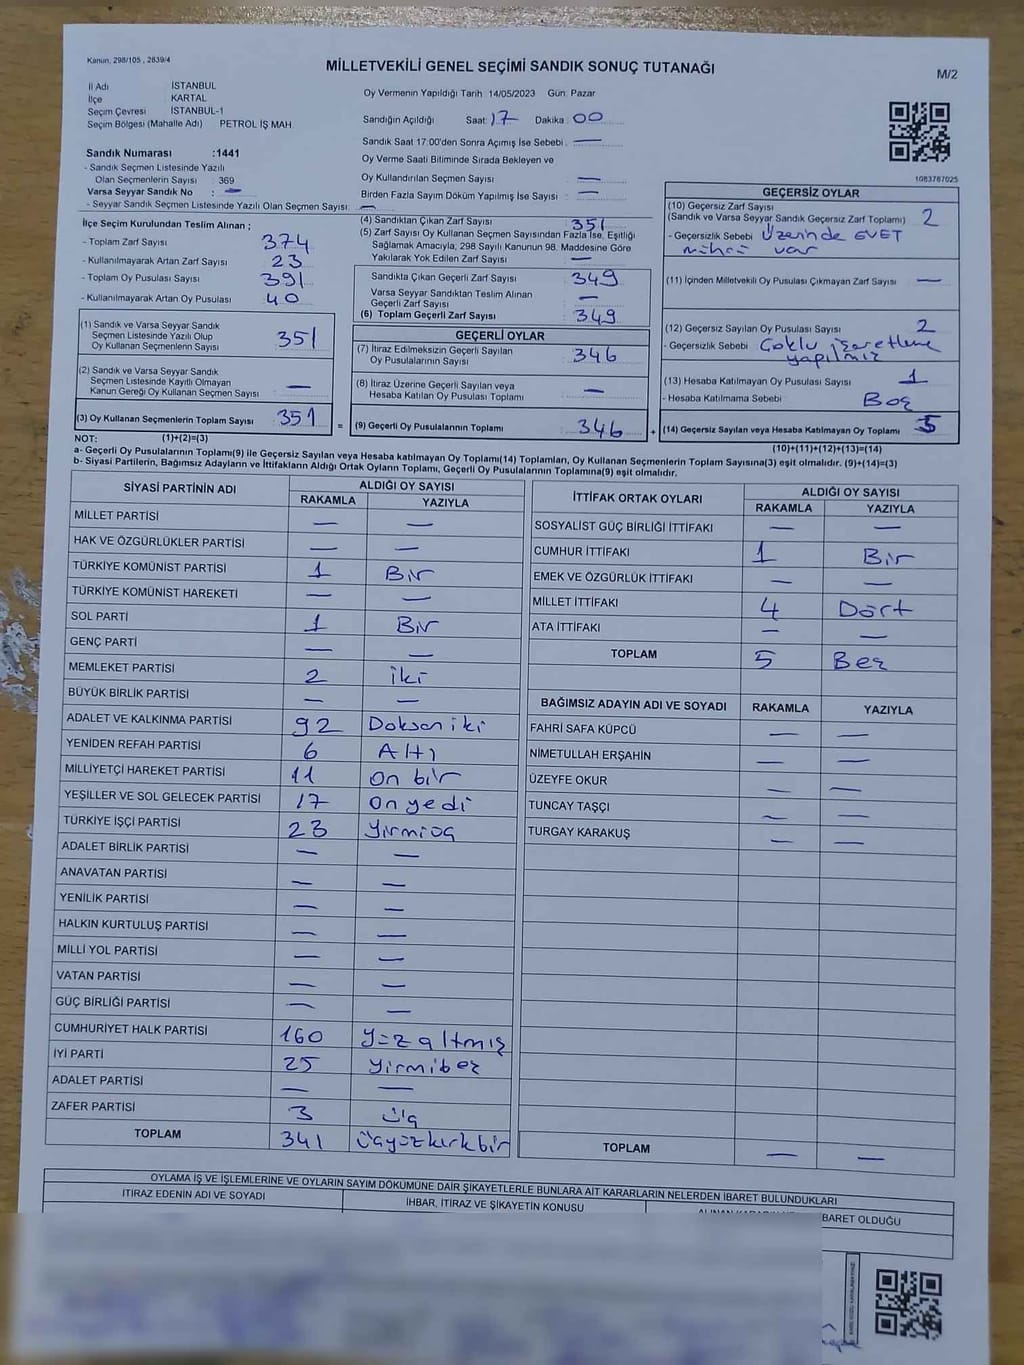 Kanun, 298/105 , 2839/4
MİLLETVEKİLİ GENEL SEÇİMİ SANDIK SONUÇ TUTANAĞI
M/2
İl Adı İSTANBUL
İlçe KARTAL
Seçim Çevresi İSTANBUL-1
Seçim Bölgesi (Mahalle Adı) PETROL İŞ MAH
Oy Vermenin Yapıldığı Tarih : 14/05/2023 Gün: Pazar
Sandığın Açıldığı Saat: 17 Dakika: 00
Sandık Saat 17:00'den Sonra Açımış İse Sebebi : —
Oy Verme Saati Bitiminde Sırada Bekleyen ve
Oy Kullandırılan Seçmen Sayısı —
Birden Fazla Sayım Döküm Yapılmış İse Sayısı : —
Sandık Numarası :1441
- Sandık Seçmen Listesinde Yazılı
Olan Seçmenlerin Sayısı : 369
Varsa Seyyar Sandık No : —
- Seyyar Sandık Seçmen Listesinde Yazılı Olan Seçmen Sayısı: —
1083787025
İlçe Seçim Kurulundan Teslim Alınan ;
- Toplam Zarf Sayısı 374
- Kullanılmayarak Artan Zarf Sayısı 23
- Toplam Oy Pusulası Sayısı 391
- Kullanılmayarak Artan Oy Pusulası 40
(1) Sandık ve Varsa Seyyar Sandık
Seçmen Listesinde Yazılı Olup
Oy Kullanan Seçmenlerin Sayısı 351
(2) Sandık ve Varsa Seyyar Sandık
Seçmen Listesinde Kayıtlı Olmayan
Kanun Gereği Oy Kullanan Seçmen Sayısı —
(3) Oy Kullanan Seçmenlerin Toplam Sayısı 351
(4) Sandıktan Çıkan Zarf Sayısı 351
(5) Zarf Sayısı Oy Kullanan Seçmen Sayısından Fazla İse, Eşitliği
Sağlamak Amacıyla, 298 Sayılı Kanunun 98. Maddesine Göre
Yakılarak Yok Edilen Zarf Sayısı —
Sandıkta Çıkan Geçerli Zarf Sayısı 349
Varsa Seyyar Sandıktan Teslim Alınan
Geçerli Zarf Sayısı —
(6) Toplam Geçerli Zarf Sayısı 349
GEÇERLİ OYLAR
(7) İtiraz Edilmeksizin Geçerli Sayılan
Oy Pusulalarının Sayısı 346
(8) İtiraz Üzerine Geçerli Sayılan veya
Hesaba Katılan Oy Pusulası Toplamı —
= (9) Geçerli Oy Pusulalarının Toplamı 346 +
GEÇERSİZ OYLAR
(10) Geçersiz Zarf Sayısı
(Sandık ve Varsa Seyyar Sandık Geçersiz Zarf Toplamı) 2
- Geçersizlik Sebebi Üzerinde EVET
mührü var
(11) İçinden Milletvekili Oy Pusulası Çıkmayan Zarf Sayısı —
(12) Geçersiz Sayılan Oy Pusulası Sayısı 2
- Geçersizlik Sebebi Çoklu işaretleme
yapılmış
(13) Hesaba Katılmayan Oy Pusulası Sayısı 1
- Hesaba Katılmama Sebebi Boş
(14) Geçersiz Sayılan veya Hesaba Katılmayan Oy Toplamı 5
NOT: (1)+(2)=(3)
(10)+(11)+(12)+(13)=(14)
a- Geçerli Oy Pusulalarının Toplamı(9) ile Geçersiz Sayılan veya Hesaba katılmayan Oy Toplamı(14) Toplamları, Oy Kullanan Seçmenlerin Toplam Sayısına(3) eşit olmalıdır. (9)+(14)=(3)
b- Siyasi Partilerin, Bağımsız Adayların ve İttifakların Aldığı Ortak Oyların Toplamı, Geçerli Oy Pusulalarının Toplamına(9) eşit olmalıdır.
SİYASİ PARTİNİN ADI ALDIĞI OY SAYISI
RAKAMLA YAZIYLA
MİLLET PARTİSİ — —
HAK VE ÖZGÜRLÜKLER PARTİSİ — —
TÜRKİYE KOMÜNİST PARTİSİ 1 Bir
TÜRKİYE KOMÜNİST HAREKETİ — —
SOL PARTİ 1 Bir
GENÇ PARTİ — —
MEMLEKET PARTİSİ 2 iki
BÜYÜK BİRLİK PARTİSİ — —
ADALET VE KALKINMA PARTİSİ 92 Doksan iki
YENİDEN REFAH PARTİSİ 6 Altı
MİLLİYETÇİ HAREKET PARTİSİ 11 on bir
YEŞİLLER VE SOL GELECEK PARTİSİ 17 On yedi
TÜRKİYE İŞÇİ PARTİSİ 23 Yirmiüç
ADALET BİRLİK PARTİSİ — —
ANAVATAN PARTİSİ — —
YENİLİK PARTİSİ — —
HALKIN KURTULUŞ PARTİSİ — —
MİLLİ YOL PARTİSİ — —
VATAN PARTİSİ — —
GÜÇ BİRLİĞİ PARTİSİ — —
CUMHURİYET HALK PARTİSİ 160 Yüz altmış
İYİ PARTİ 25 Yirmibeş
ADALET PARTİSİ — —
ZAFER PARTİSİ 3 Üç
TOPLAM 341 Üçyüzkırkbir
İTTİFAK ORTAK OYLARI ALDIĞI OY SAYISI
RAKAMLA YAZIYLA
SOSYALİST GÜÇ BİRLİĞİ İTTİFAKI — —
CUMHUR İTTİFAKI 1 Bir
EMEK VE ÖZGÜRLÜK İTTİFAKI — —
MİLLET İTTİFAKI 4 Dört
ATA İTTİFAKI — —
TOPLAM 5 Beş
BAĞIMSIZ ADAYIN ADI VE SOYADI RAKAMLA YAZIYLA
FAHRİ SAFA KÜPCÜ — —
NİMETULLAH ERŞAHİN — —
ÜZEYFE OKUR — —
TUNCAY TAŞÇI — —
TURGAY KARAKUŞ — —
TOPLAM — —
OYLAMA İŞ VE İŞLEMLERİNE VE OYLARIN SAYIM DÖKÜMÜNE DAİR ŞİKAYETLERLE BUNLARA AİT KARARLARIN NELERDEN İBARET BULUNDUKLARI
İTİRAZ EDENİN ADI VE SOYADI İHBAR, İTİRAZ VE ŞİKAYETİN KONUSU BARET OLDUĞU